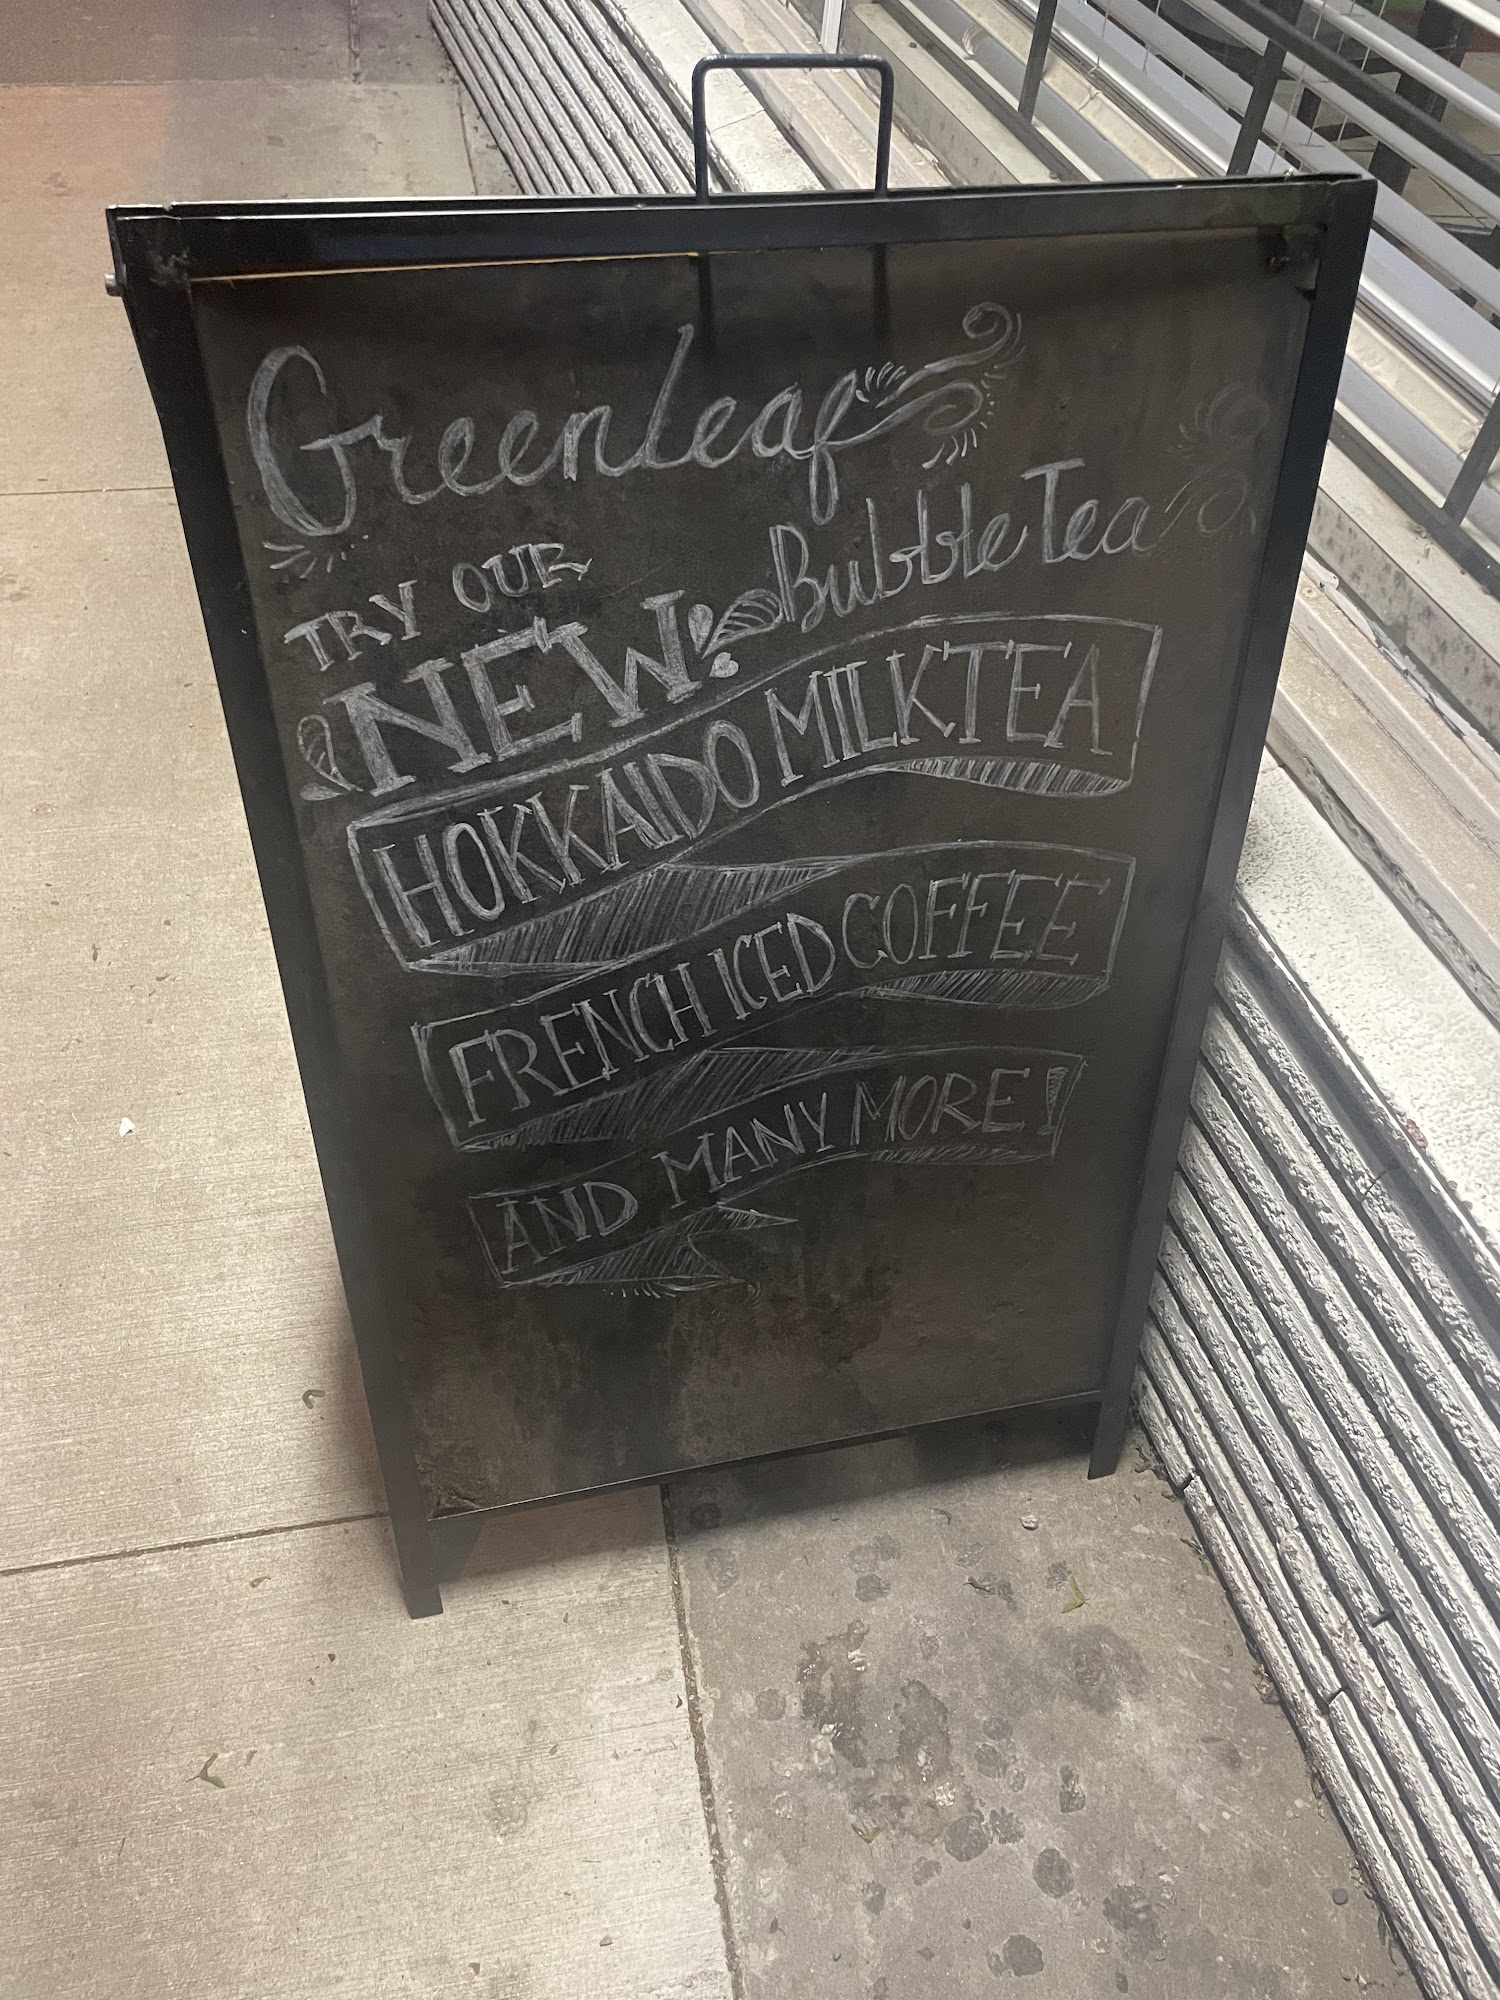 Greenleaf
Bubble Tea
TRY OUR
NEW
HOKKAIDO MILK TEA
FRENCH ICED COFFEE
AND MANY MORE!